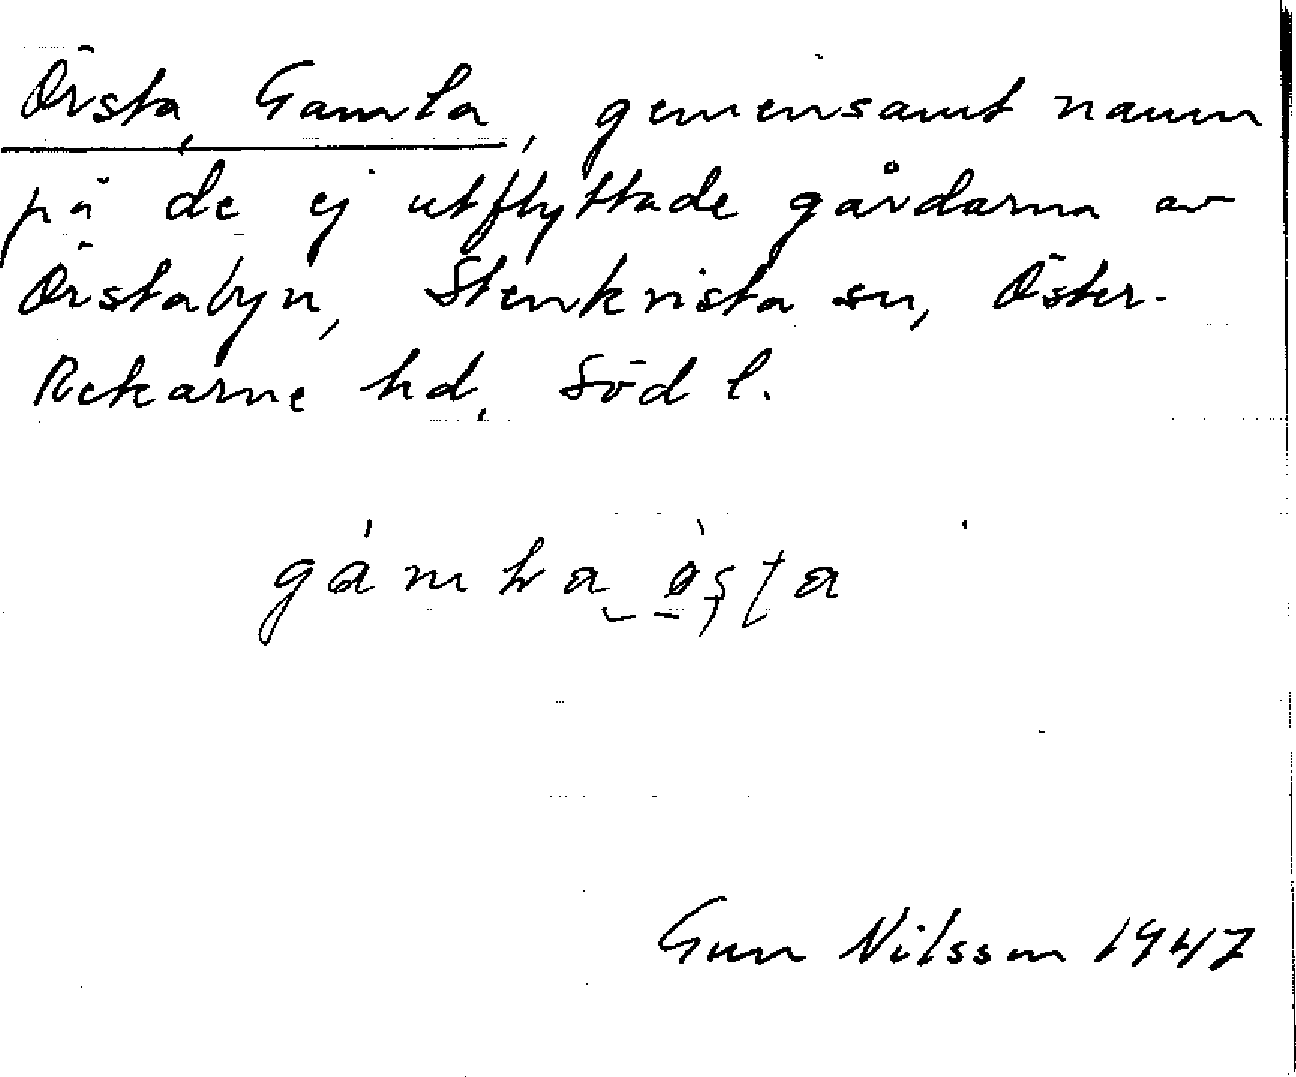 Örsta, Gamla, gemensamt namn
på de ej utflyttade gårdarna av
Örstabyn, Stenkvista sn, Öster-
Rekarne hd, Södl.
Gun Nilsson 1947